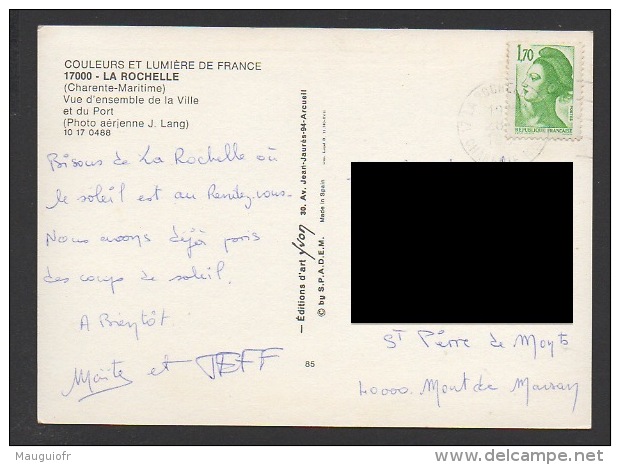 COULEURS ET LUMIÈRE DE FRANCE
17000 - LA ROCHELLE
(Charente-Maritime)
Vue d'ensemble de la Ville
et du Port
(Photo aérienne J. Lang)
10 17 0488
Bisous de La Rochelle où
le soleil est au Rendez-vous.
Nous avons déjà pris
des coups de soleil.
A Bientôt.
Maïté et JEFF
— Éditions d'art Yvon 30. Av. Jean-Jaurès-94-Arcueil
© by S.P.A.D.E.M. Made in Spain
85
1,70
REPUBLIQUE FRANÇAISE
LA ROCHE
St Pierre de Mont
40000. Mont de Marsan
Mauguiofr
delcampe.net